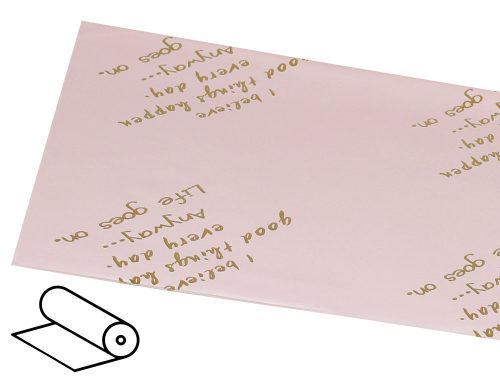 I believe
good things happen
every day.
Anyway...
goes on.
happen
day.
goes on.
I believe
good things
every day.
Anyway...
Life goes on.
day.
goes on.